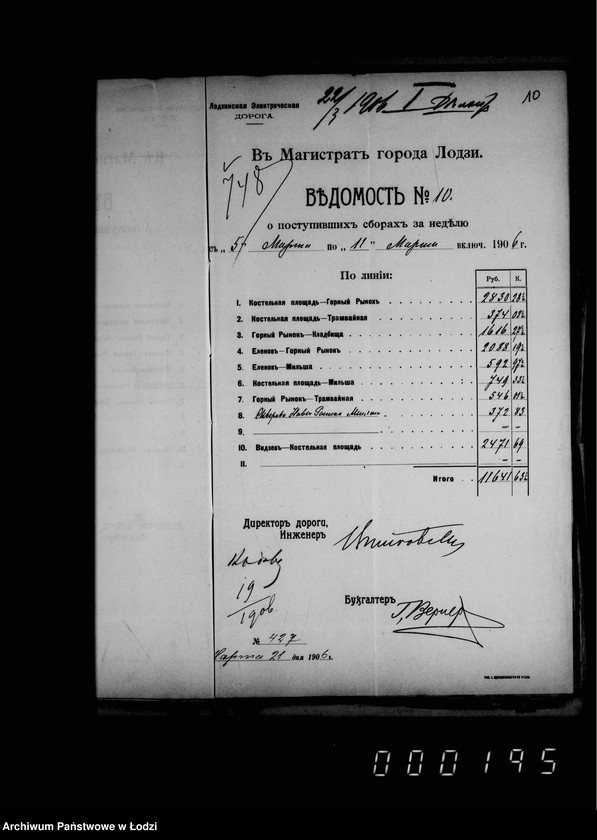 Лодзинская Электрическая
ДОРОГА.
22/3 1906 I
10
Въ Магистратъ города Лодзи.
748
ВѢДОМОСТЬ № 10.
о поступившихъ сборахъ за недѣлю
съ „ 5 „ Марта по „ 11 " Марта включ. 1906 г.
По линіи:
Руб. К.
1. Костельная площадь—Горный Рынокъ 2830
2. Костельная площадь—Трамвайная 374
3. Горный Рынокъ—Кладбища 1616
4. Еленовъ—Горный Рынокъ 2088
5. Еленовъ—Мильша 592
6. Костельная площадь—Мильша 749
7. Горный Рынокъ—Трамвайная 546
8. 372 83
9. — —
10. Видзевъ—Костельная площадь 2471 69
11. — —
Итого 11641
Директоръ дороги,
Инженеръ
19
Бухгалтеръ Г. Вернеръ
№ 427
Марта 21 дня 1906 г.
000195
Archiwum Państwowe w Łodzi